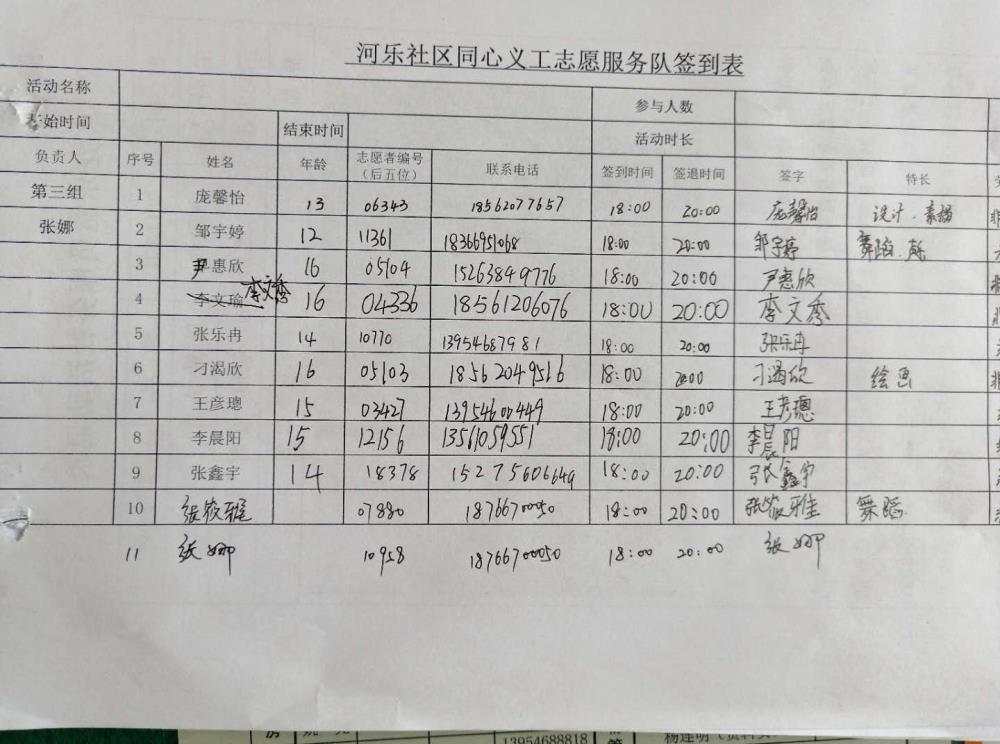 河乐社区同心义工志愿服务队签到表
活动名称 参与人数
开始时间 结束时间 活动时长
负责人 序号 姓名 年龄 志愿者编号（后五位） 联系电话 签到时间 签退时间 签字 特长
第三组 1 庞馨怡 13 06343 18562077657 18:00 20:00 庞馨怡 设计.素描
张娜 2 邹宇婷 12 11361 18366951068 18:00 20:00 邹宇婷 舞蹈.
3 尹惠欣 16 05104 15263849776 18:00 20:00 尹惠欣
4 李文瑜 李文秀 16 04336 18561206076 18:00 20:00 李文秀
5 张乐冉 14 10770 13954687981 18:00 20:00 张乐冉
6 刁渴欣 16 05103 18562049516 18:00 20:00 刁渴欣 绘画
7 王彦璁 15 03427 13954600449 18:00 20:00 王彦璁
8 李晨阳 15 12156 13561059551 18:00 20:00 李晨阳
9 张鑫宇 14 18378 15275606649 18:00 20:00 张鑫宇
10 张筱雅 07880 18766700050 18:00 20:00 张筱雅 舞蹈
11 张娜 10958 18766700050 18:00 20:00 张娜
13954688818